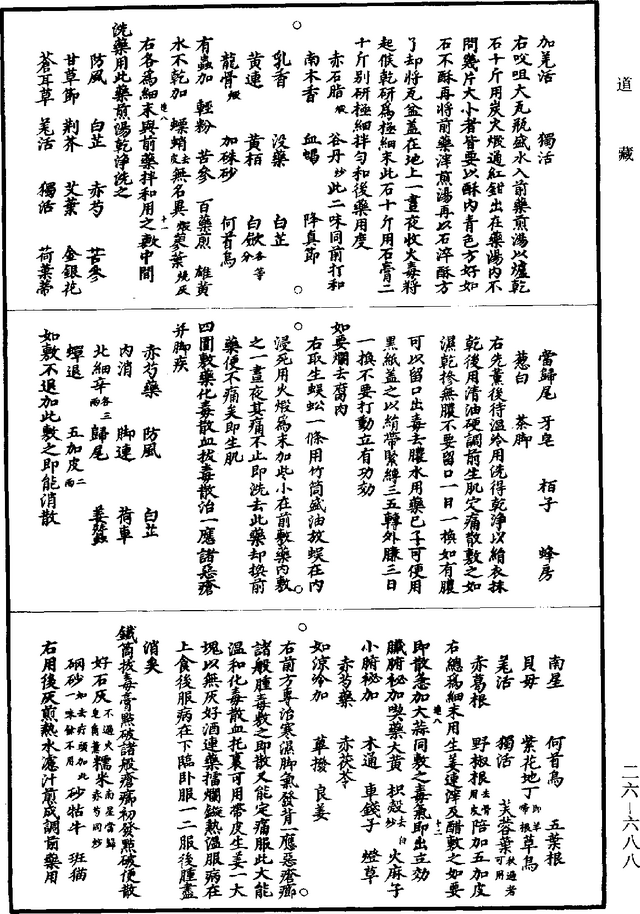 道藏
加羌活　獨活
右㕮咀大瓦瓶盛水入前藥煎湯以爐乾
石十斤用炭火煅通紅鉗出在藥湯内不
問幾片大小者皆要以酥内青色方好如
石不酥再將前藥滓煎湯再以石淬酥方
了却將瓦盆蓋在地上一晝夜收火毒將
起候乾研爲極細末此石十斤用石膏二
十斤別研極細拌勻和後藥用度
赤石脂煅　谷丹炒此二味同前打和
南木香　血竭　降真節
乳香　没藥　白芷
黄連　黄栢　白歛各等分
龍骨煅　加硃砂　何首烏
有蟲加　輕粉　苦參　百藥煎　雄黄
水不乾加　螵蛸去皮無名異煅蒙葉燒灰
右各爲細末與前藥拌和用之敷中間
洗藥用此藥煎湯乾淨洗之
防風　白芷　赤芍　苦參
甘草節　荆芥　艾葉　金銀花
蒼耳草　羌活　獨活　荷葉蒂
當歸尾　牙皂　栢子　蜂房
葱白　茶脚
右先薰後待温給用洗得乾淨以絹衣抹
乾後用清油硬調前生肌定痛散敷之如
濕乾摻無膿不要留口一日一換如有膿
可以留口出毒去膿水用藥已了可便用
黑紙蓋之以絹帶緊縛三五轉外臁三日
一換不要打動立有功効
如要爛去腐肉
右取生蜈蚣一條用竹筒盛油放蜈在内
浸死用火煅爲末加些小在前敷藥内敷
之一晝夜其痛不止即洗去此藥却換前
藥便不痛矣即生肌
四圍敷藥化毒散血拔毒散治一應諸惡瘡
并脚疾
赤芍藥　防風　白芷
内消　脚連　荷車
北細辛各三兩　歸尾　薑蠶
蟬退　五加皮二兩
如敷不退加此敷之即能消散
南星　何首烏　五葉根
貝母　紫花地丁即羊蹄根草烏
羌活　獨活　芙蓉葉秋過者可用
赤葛根　野椒根去骨用皮陪加五加皮
右總爲細末用生姜連滓及醋敷之如要
即散急加大蒜同敷之毒氣即出立効
臟腑秘加喫藥大黄　枳殻去白炒　火麻子
小腑秘加　木通　車錢子　燈草
赤芍藥　赤茯苓
如涼冷加　蓽撥　良姜
右前方專治寒濕脚氣發背一應惡瘡癤
諸般腫毒敷之即散又能定痛服此大能
温和化毒散血托裏可用帶皮生姜一大
塊以無灰好酒連藥擂爛鎚熱温服病在
上食後服病在下臨卧服一二服後腫盡
消矣
鐵筩拔毒膏點破諸般瘡癤初發點破便散
好石灰不過火皂角薰　糯米南星當歸赤芍同炒
硇砂如去疔頭加此一味餘不用　砂牯牛　班猫
右用後灰煎熱水濾汁煎成調前藥用
二六—六八八